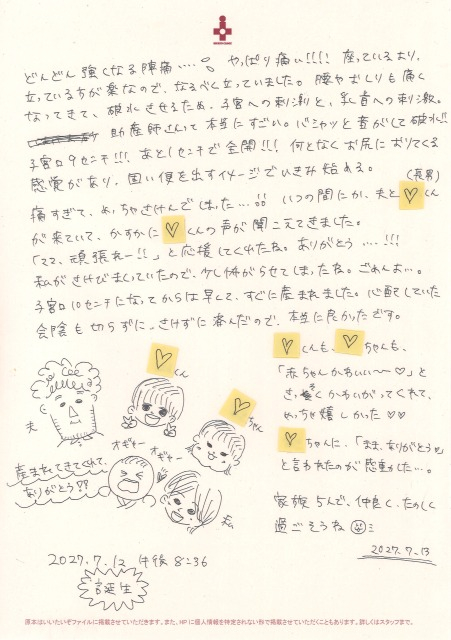 どんどん強くなる陣痛…。やっぱり痛い!!!! 座っているより、
立っている方が楽なので、なるべく立っていました。腰やおしりも痛く
なってきて、破水させるため、子宮への刺激と、乳首への刺激。
助産師さんって本当にすごい。バシャッと音がして破水!!
子宮口9センチ!!! あと1センチで全開!!! 何となくお尻におりてくる
感覚があり、固い便を出すイメージでいきみ始める。
痛すぎて、めっちゃさけんでしまった…!! いつの間にか、夫と♡くん(長男)
が来ていて、かすかに♡くんの声が聞こえてきました。
「ママ、頑張れー!!」と応援してくれたね。ありがとう…!!!
私がさけびまくっていたので、少し怖がらせてしまったね。ごめんよ…。
子宮口10センチになってからは早くて、すぐに産まれました。心配していた
会陰も切らずに、さけずに済んだので、本当に良かったです。
♡くんも、♡ちゃんも、
「赤ちゃんかわいい〜♡」と
さっそくかわいがってくれて、
めっちゃ嬉しかった♡♡
♡ちゃんに、「まま、ありがとう♡」
と言われたのが感動した…。
家族5人で、仲良く、たのしく
過ごそうね
2027.7.13
♡くん
♡ちゃん
夫
オギャー
オギャー
産まれてきてくれて、
ありがとう!?
2027.7.12 午後8:36
誕生
原本はいいたいぞファイルに掲載させていただきます。また、HPに個人情報を特定されない形で掲載させていただくこともあります。詳しくはスタッフまで。